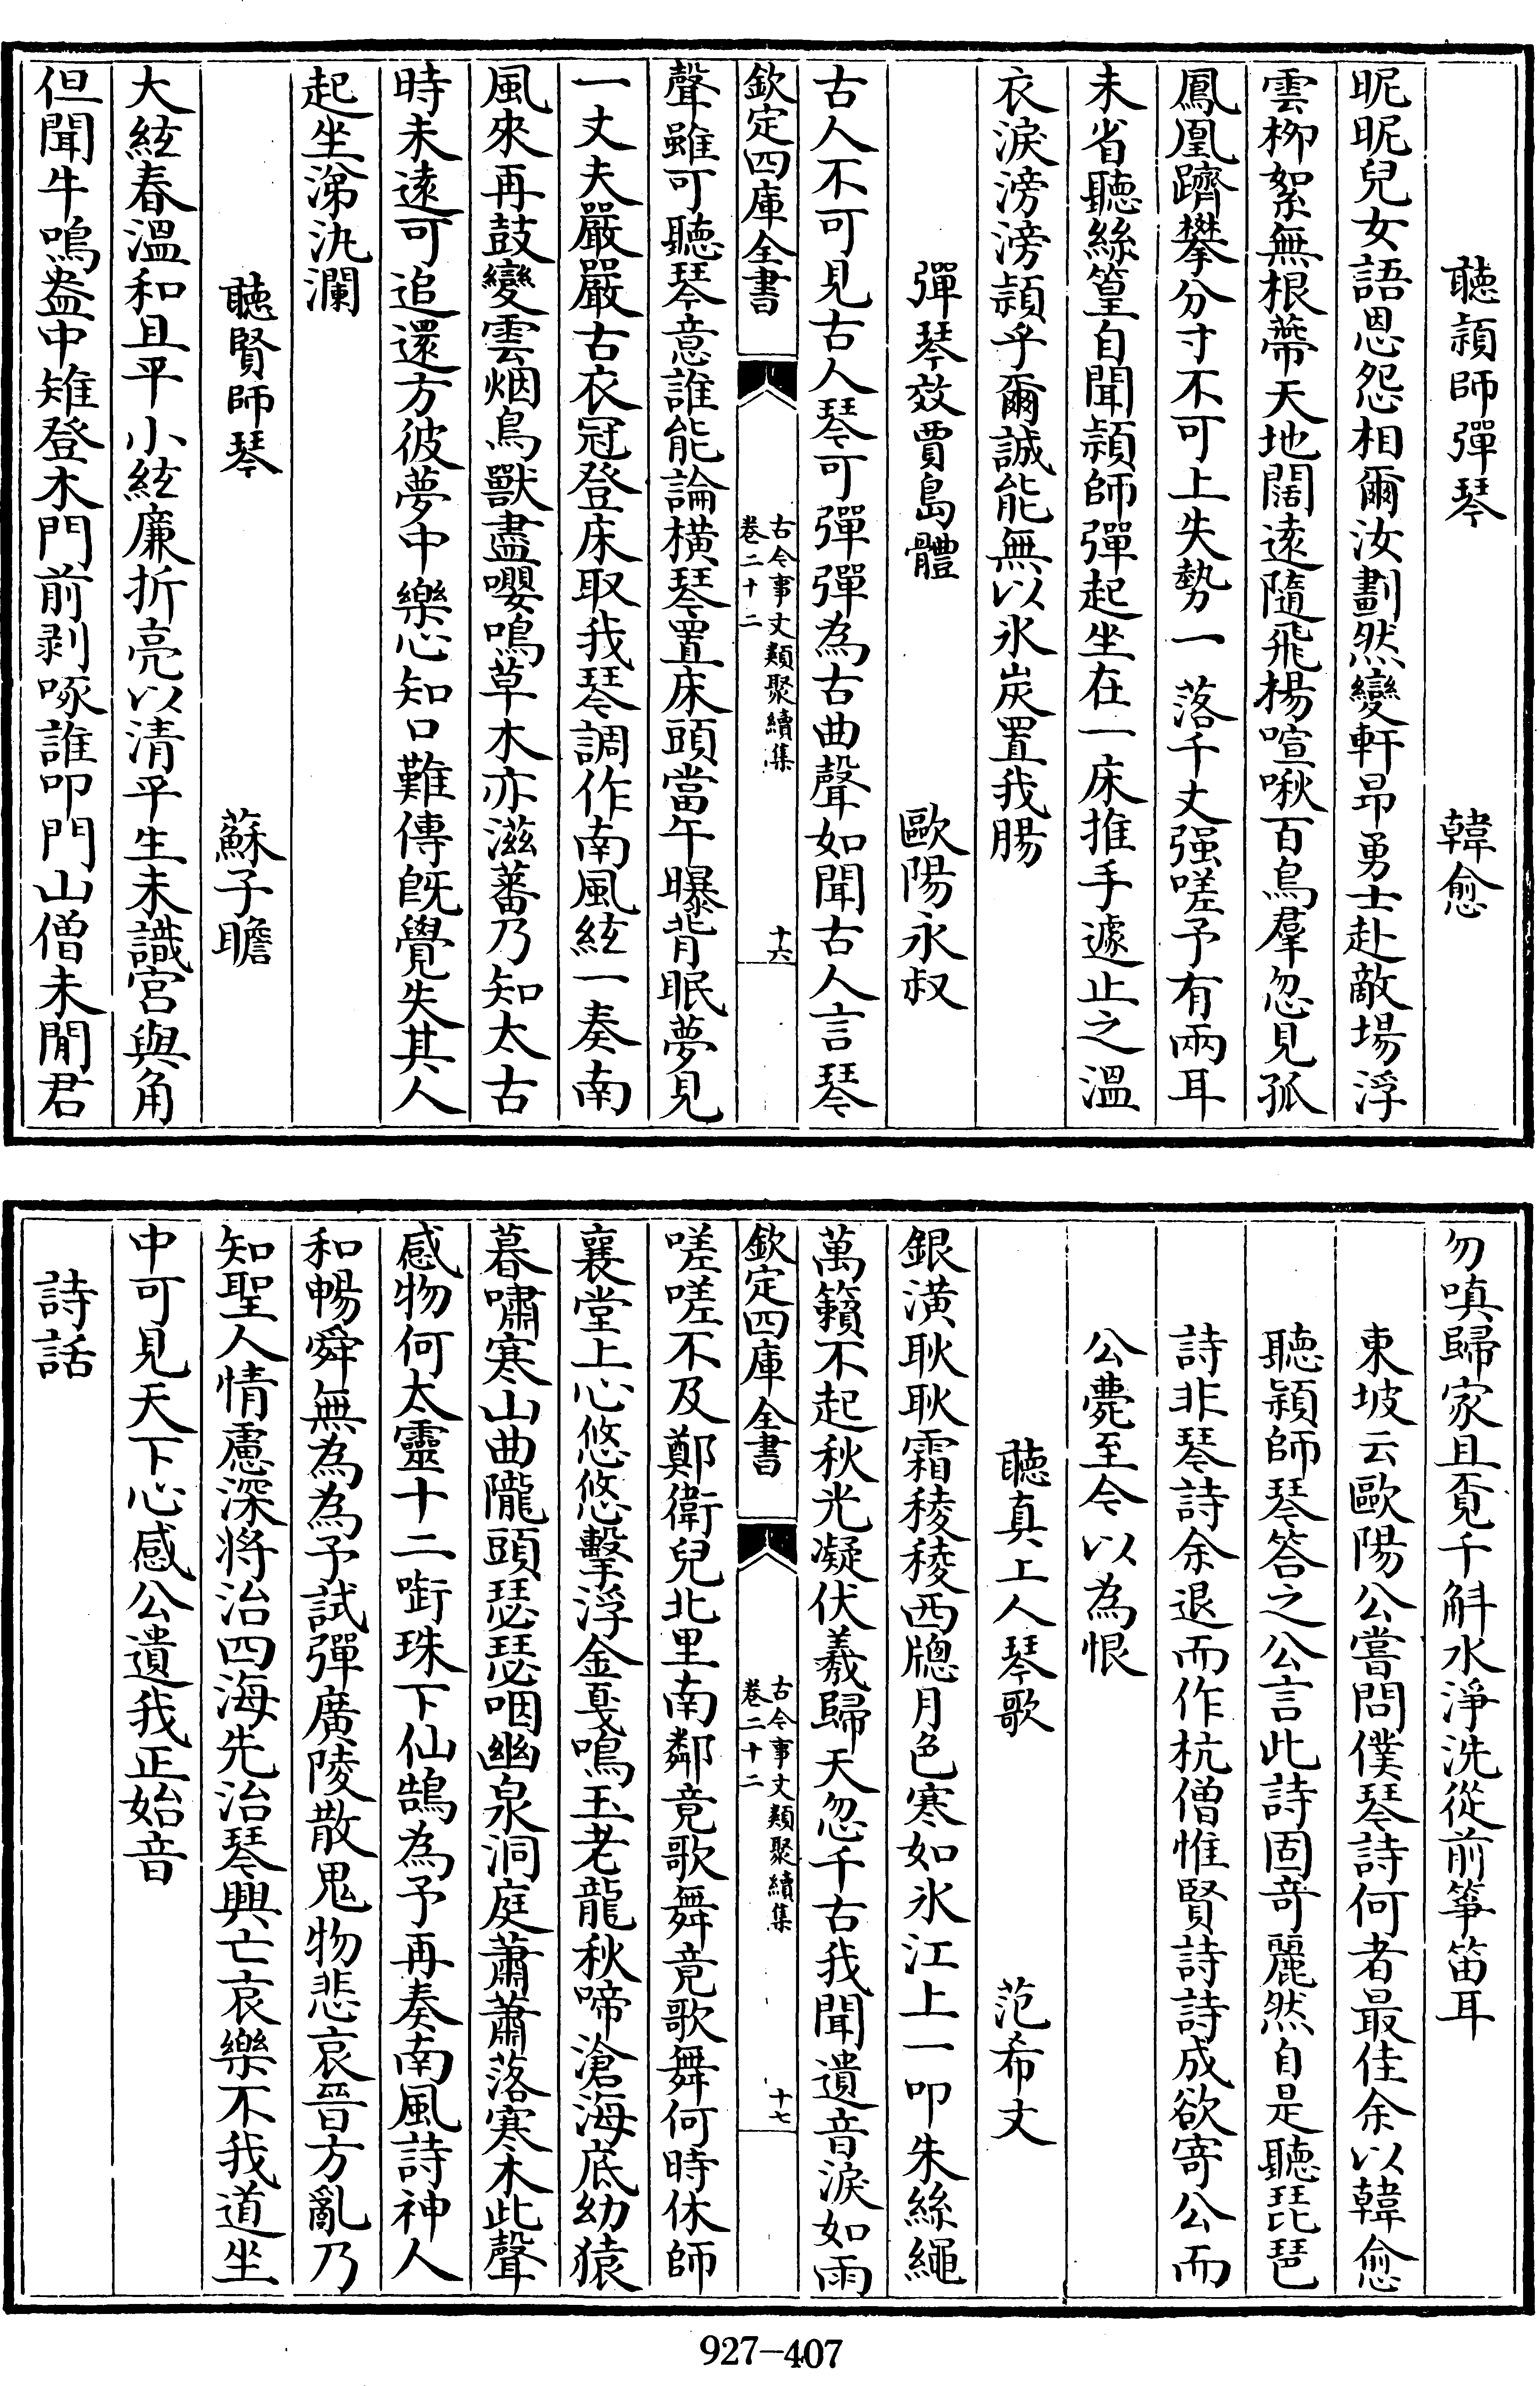 聽潁師彈琴 韓愈
昵昵兒女語恩怨相爾汝劃然變軒昂勇士赴敵場浮
雲柳絮無根蔕天地闊逺隨飛揚喧啾百鳥羣忽見孤
鳳凰躋攀分寸不可上失勢一落千丈强嗟予有兩耳
未省聽絲篁自聞潁師彈起坐在一床推手遽止之溫
衣淚滂滂潁乎爾誠能無以氷炭置我腸
彈琴效賈島體 歐陽永叔
古人不可見古人琴可彈彈為古曲聲如聞古人言琴
欽定四庫全書
古今事文類聚續集
卷二十二
十六
聲雖可聽琴意誰能論橫琴置床頭當午曝背眠夢見
一丈夫嚴嚴古衣冠登床取我琴調作南風絃一奏南
風來再鼓變雲烟鳥獸盡嚶鳴草木亦滋蕃乃知太古
時未逺可追還方彼夢中樂心知口難傳旣覺失其人
起坐涕汍瀾
聽賢師琴 蘇子瞻
大絃春溫和且平小絃廉折亮以清平生未識宮與角
但聞牛鳴盎中雉登木門前剥啄誰叩門山僧未閒君
勿嗔歸家且覔千斛水淨洗從前箏笛耳
東坡云歐陽公嘗問僕琴詩何者最佳余以韓愈
聽潁師琴答之公言此詩固竒麗然自是聽琵琶
詩非琴詩余退而作杭僧惟賢詩詩成欲寄公而
公薨至今以為恨
聽真上人琴歌 范希文
銀潢耿耿霜稜稜西牕月色寒如氷江上一叩朱絲繩
萬籟不起秋光凝伏羲歸天忽千古我聞遺音淚如雨
欽定四庫全書
古今事文類聚續集
卷二十二
十七
嗟嗟不及鄭衛兒北里南鄰竟歌舞竟歌舞何時休師
襄堂上心悠悠擊浮金戛鳴玉老龍秋啼滄海底幼猿
暮嘯寒山曲隴頭瑟瑟咽幽泉洞庭蕭蕭落寒木此聲
感物何太靈十二銜珠下仙鵠為予再奏南風詩神人
和暢舜無為為予試彈廣陵散鬼物悲哀晉方亂乃
知聖人情慮深將治四海先治琴興亡哀樂不我道坐
中可見天下心感公遺我正始音
詩話
927-407